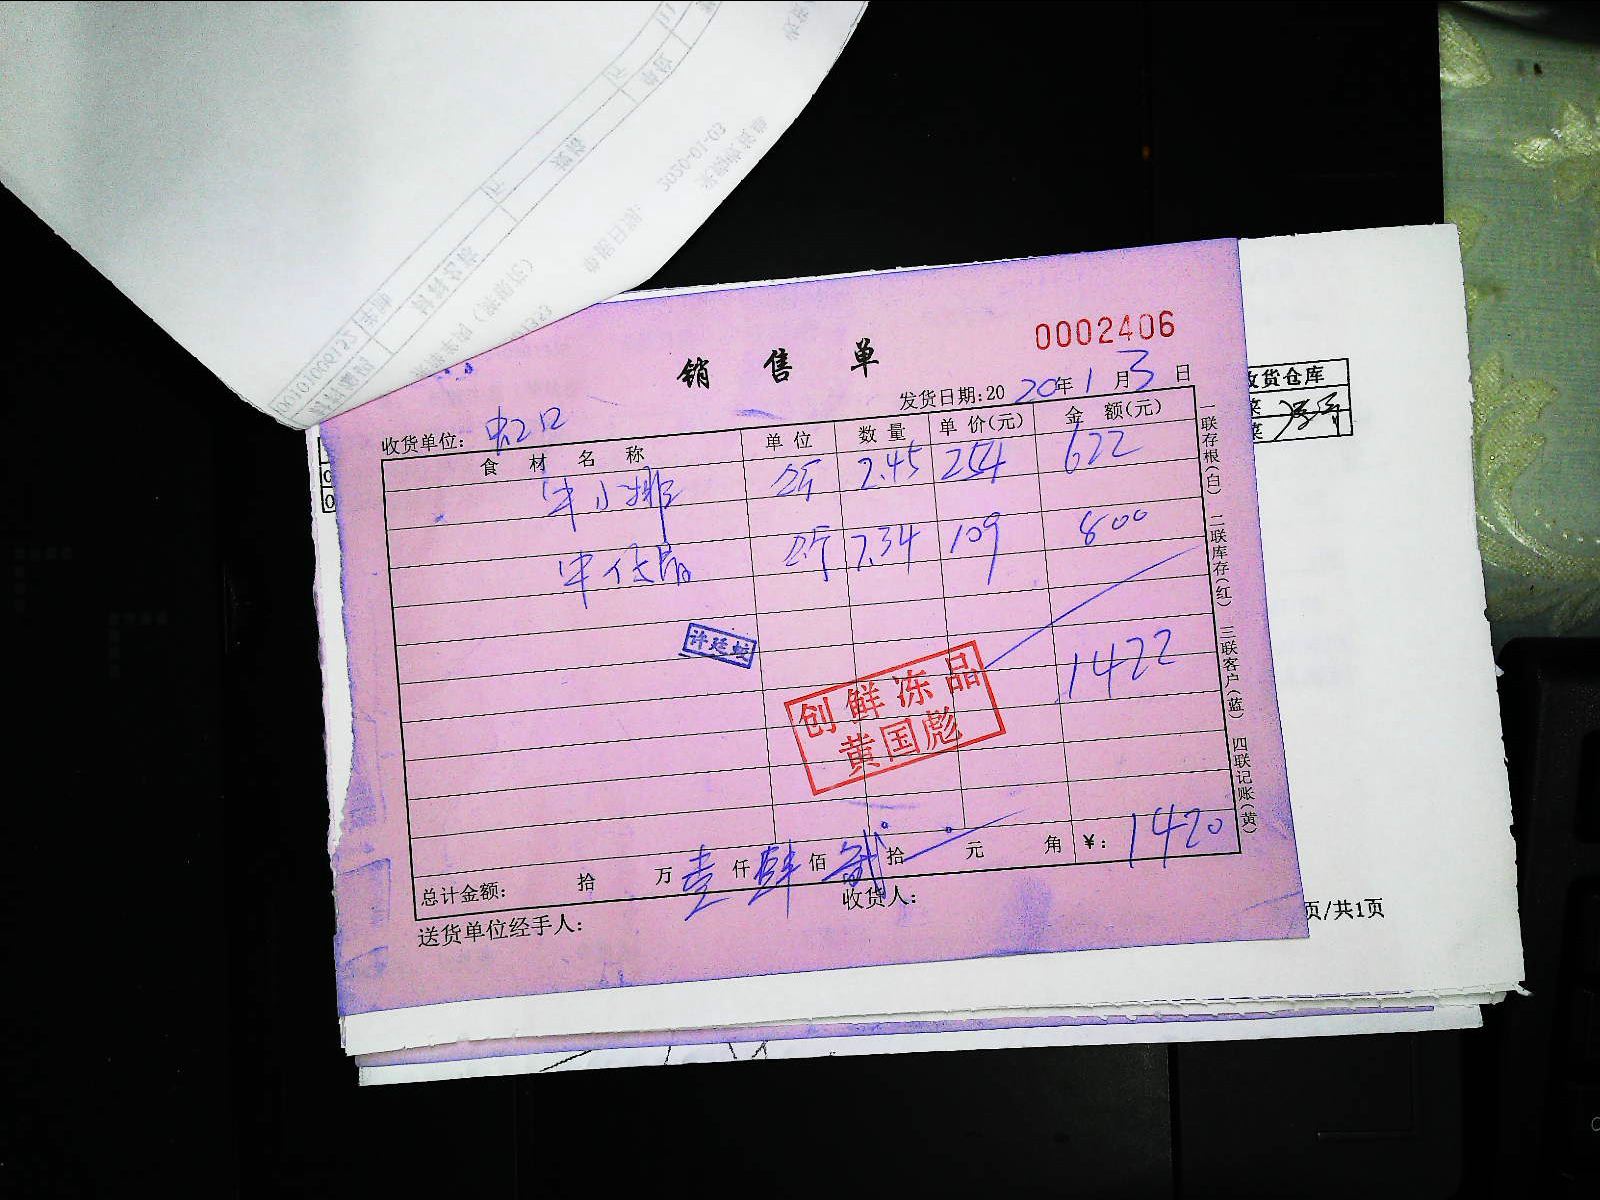 销 售 单
0002406
发货日期:2020年1月3日
收货单位: 虹口
食 材 名 称 单 位 数 量 单 价(元) 金 额(元)
牛小排 公斤 2.45 254 622
公斤 7.34 109 800
许廷蛟
1422
创鲜冻品
黄国彪
总计金额: 拾 万 壹 仟 肆 佰 贰 拾 元 角 ¥: 1420
送货单位经手人: 收货人:
一联存根(白) 二联库存(红) 三联客户(蓝) 四联记账(黄)
收货仓库
菜
菜
页/共1页
2020-01-03